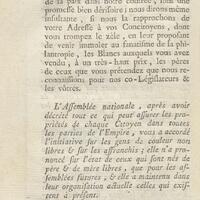 de la paix dans notre contrée, soit une
promesse bien dérisoire ; nous dirons même
insultante, si nous la rapprochons de
votre Adresse à vos Concitoyens, dont
vous trompez le zèle, en leur proposant
de venir immoler au fanatisme de la phi-
lantropie, les Blancs auxquels vous avez
vendu, à un très-haut prix, les pères
de ceux que vous prétendez que nous re-
connaissions pour nos co-Législateurs &
les vôtres.
L'Assemblée nationale, après avoir
décrété tout ce qui peut assurer les pro-
priétés de chaque Citoyen dans toutes
les parties de l'Empire, vous a accordé
l'initiative sur les gens de couleur non
libres & sur les affranchis ; elle n'a pro-
noncé sur l'état de ceux qui sont nés de
père & de mère libres, que pour les as-
semblées futures ; & elle a maintenu dans
leur organisation actuelle celles qui exis-
tent à présent.